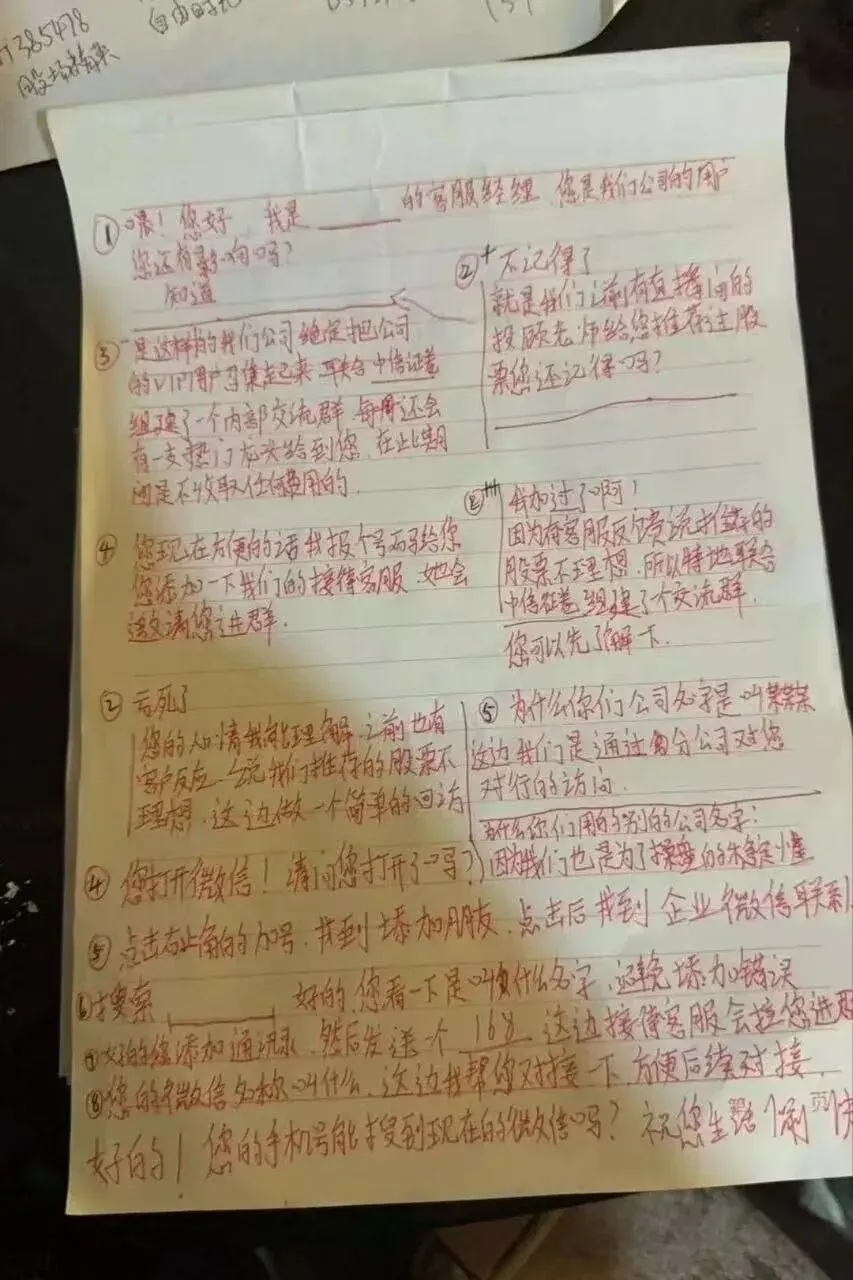 385478
股市精英
自由时光
①喂！您好 我是____的客服经理 您是我们公司的用户
您还有影响吗？
知道
②+不记得了
就是我们之前有直播间的
投顾老师给您推荐过股
票您还记得吗？
③是这样的我们公司 决定把公司
的VIP用户召集起来 联合中信证卷
组建了一个内部交流群 每周还会
有一支热门龙头给到您 在此期
间是不收取任何费用的.
②+++我加过了啊！
因为有客服反馈说推荐的
股票不理想.所以特地联合
中信证卷组建了个交流群.
您可以先了解一下.
④您现在方便的话我报个号码给您
您添加一下我们的接待客服 她会
邀请您进群.
②亏死了
您的心情我能理解 之前也有
客户反应 说我们推荐的股票不
理想.这边做一个简单的回访
⑤为什么你们公司名字是叫某某某
这边我们是通过 分公司对您
进行的访问.
为什么你们用的别的公司名字：
因为我们也是为了操盘的
④您打开微信！请问您打开了吗？
⑤点击右上角的加号.找到添加朋友.点击后找到企业微信联系
⑥搜索____好的,您看一下是叫什么名字,避免添加错误
⑦好的您添加通讯录.然后发送一个 168 这边接待客服会拉您进群
⑧您的微信名称叫什么.这边我帮您对接一下.方便后续对接.
好的！您的手机号能搜到现在的微信吗？祝您生活愉快